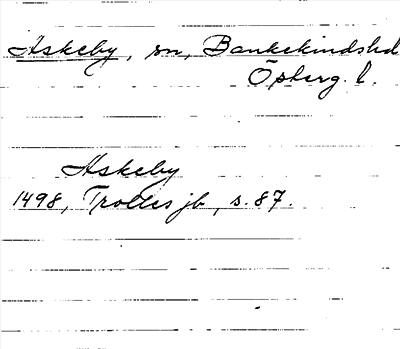 Askeby, sn, Bankekindshd
Öpberg. l.
Askeby
1498, Trolles jb, s. 87.